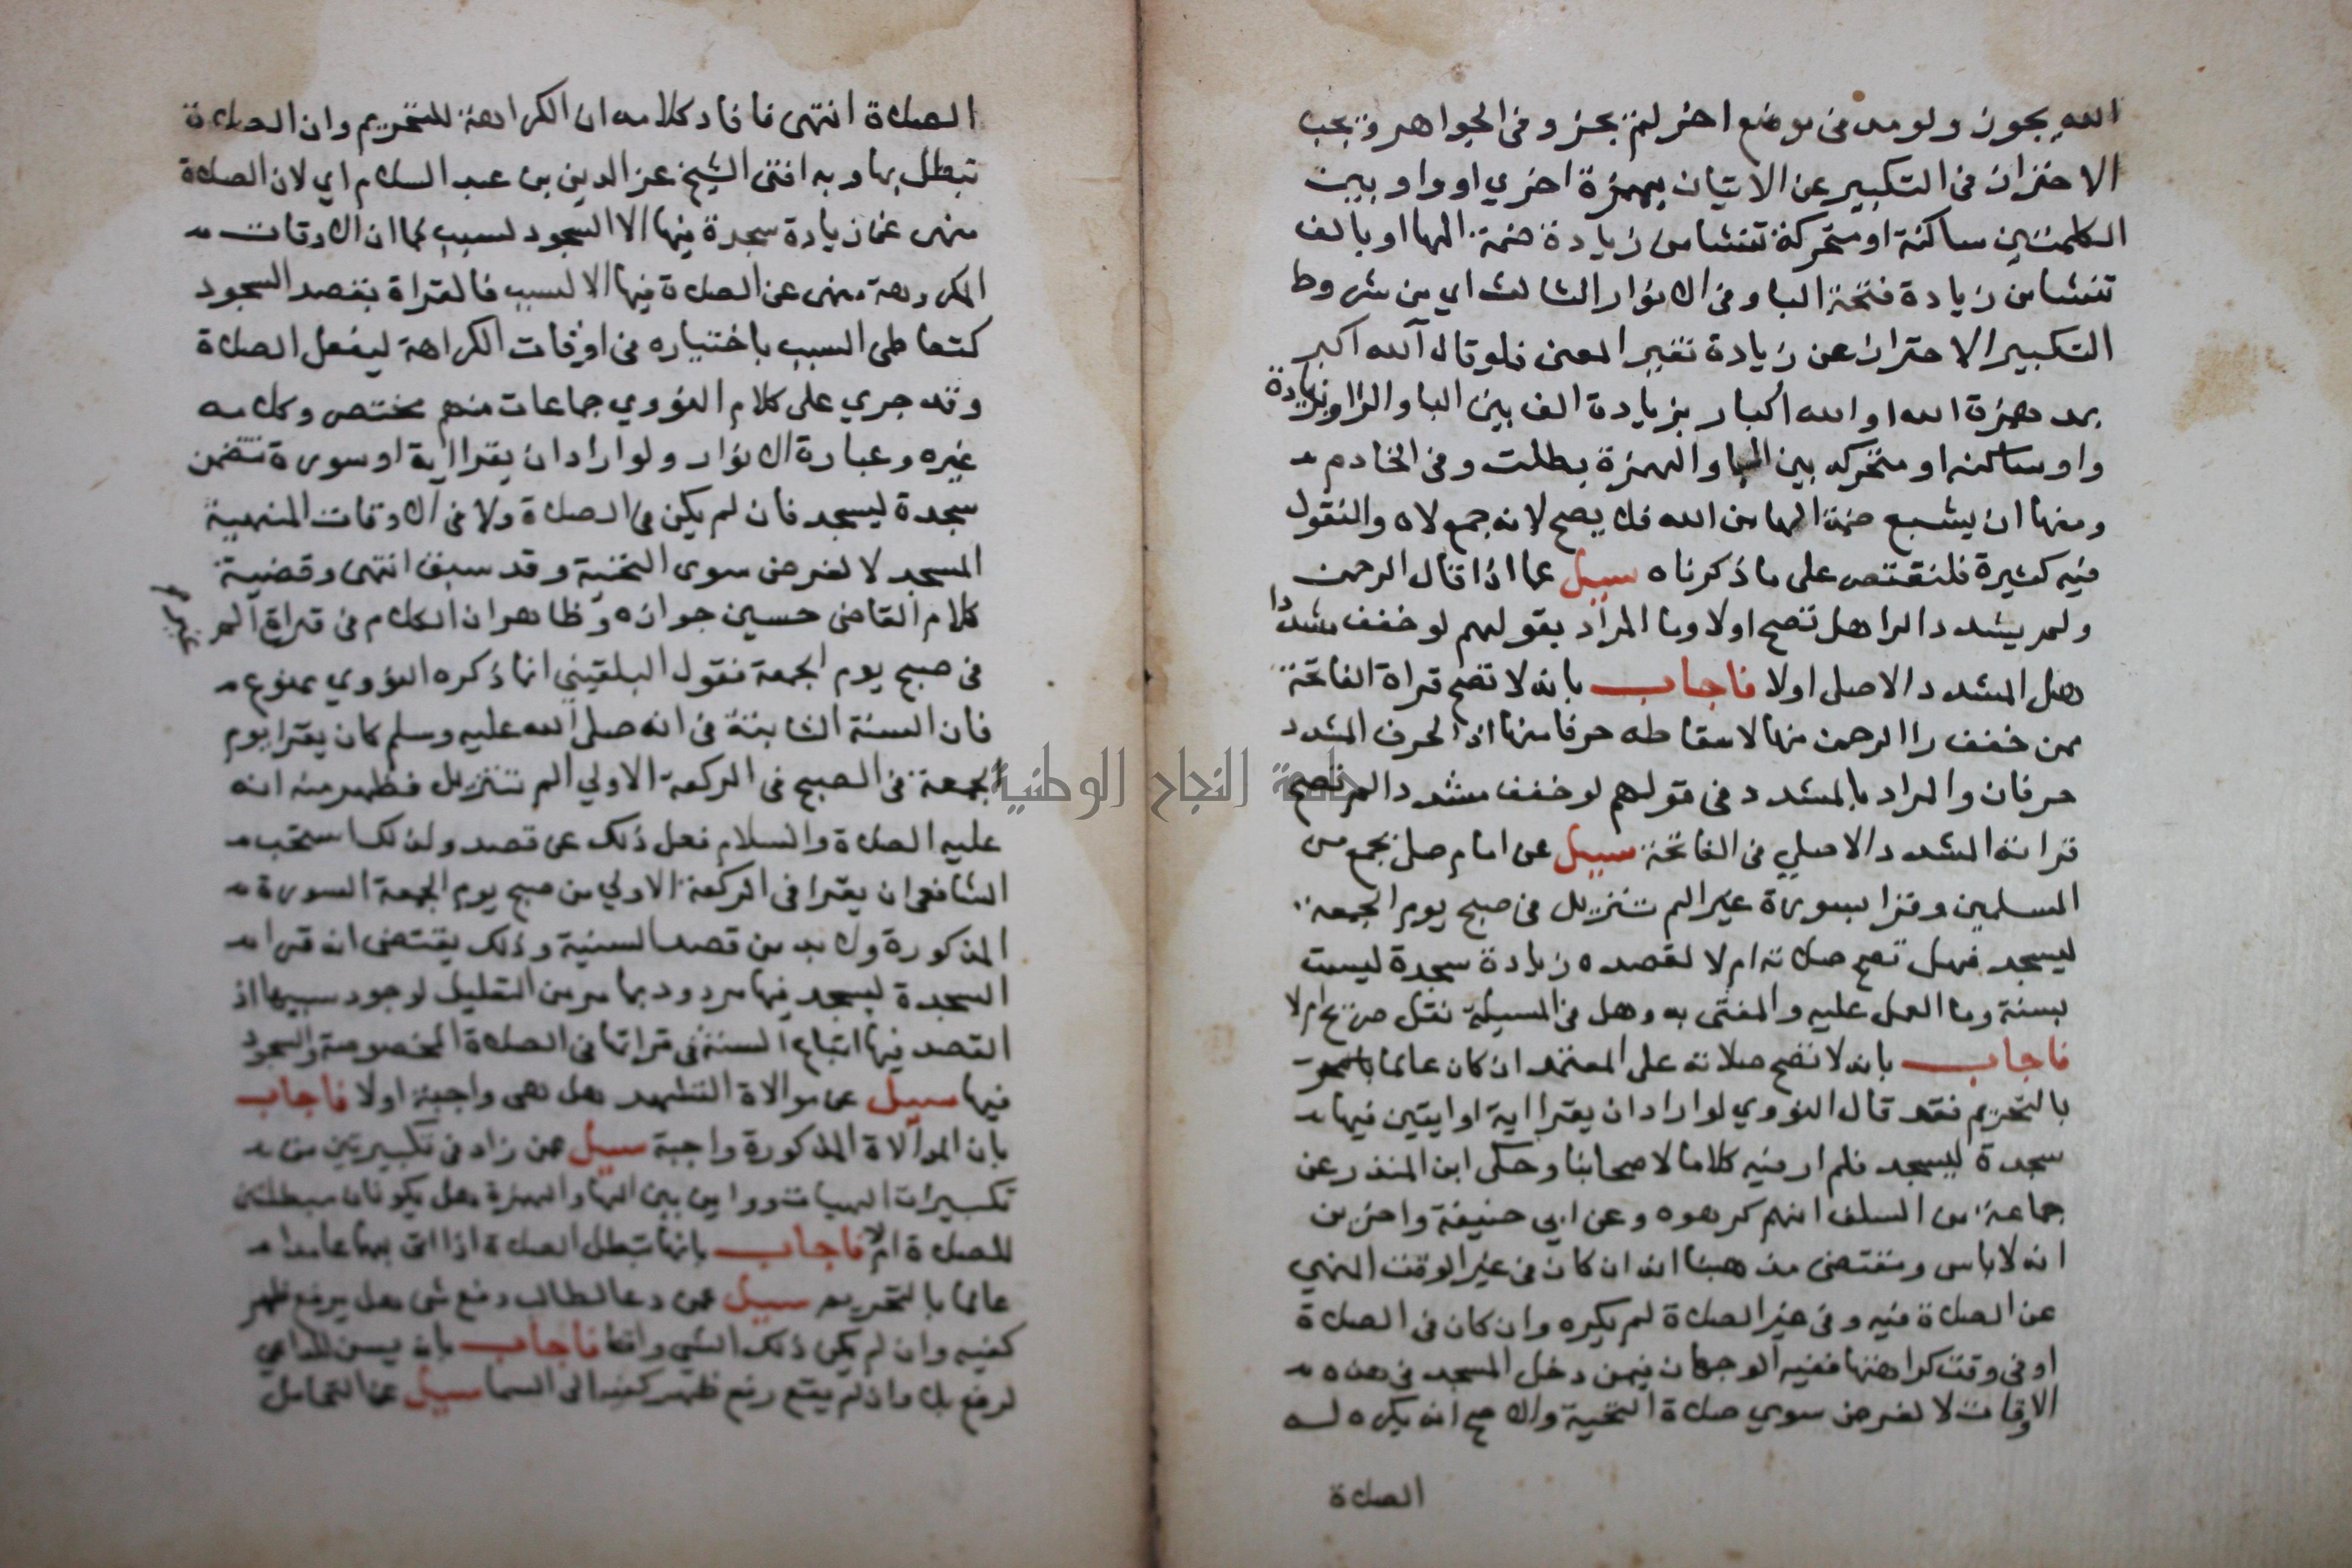 الله يجوز ولو مد فى موضع اخر لم يجز وفى الجواهر ويجب
الاحتراز فى التكبير عن الاتيان بهمزة اخري او واو بين
الكلمتين ساكنة او متحركة تنشا من زيادة ضمة الها او بالف
تنشا من زيادة فتحة البا وفى الانوار الثالث اي من شروط
التكبير الاحتراز عن زيادة تغير المعنى فلو قال آلله اكبر
بمد همزة الله او الله اكبار بزيادة الف بين البا والرا او بزيادة
واو ساكنه او متحركه بين الها والهمزة بطلت وفى الخادم
ومنها ان يشبع ضمة الها من الله فلا يصح لانه جمع لاه والنقول
فيه كثيرة فلنقتصر على ما ذكرناه سيل عما اذا قال الرحمن
ولم يشدد الرا هل تصح اولا وما المراد بقولهم لو خفف مشددا
هل المشدد الاصلى اولا فاجاب بانه لا تصح قراة الفاتحة
ممن خفف را الرحمن منها لاسقاطه حرفا منها اذ الحرف المشدد
حرفان والمراد بالمشدد فى قولهم لو خفف مشددا لم تصح
قراته المشدد الاصلي فى الفاتحة سيل عن امام صلى بجمع من
المسلمين وقرا بسورة غير الم تنزيل فى صبح يوم الجمعة
ليسجد فهل تصح صلاته ام لا لقصده زيادة سجدة ليست
بسنة وما العمل عليه والمفتى به وهل فى المسيلة نقل صريح ام لا
فاجاب بانه لا تصح صلاته على المعتمد ان كان عالما
بالتحريم فقد قال النووي لو اراد ان يقرا اية او ايتين فيها
سجدة ليسجد فلم ار فيه كلاما لاصحابنا وحكى ابن المنذر عن
جماعة من السلف انهم كرهوه وعن ابي حنيفة واخرين
انه لا باس ومقتضى مذهبنا انه ان كان فى غير الوقت المنهي
عن الصلاة فيه وفى غير الصلاة لم يكره وان كان فى الصلاة
او فى وقت كراهتها ففيه الوجهان فيمن دخل المسجد فى هذه
الاوقات لا لغرض سوي صلاة التحية والاصح انه يكره له
الصلاة
الصلاة انتهى فافاد كلامه ان الكراهة للتحريم وان الصلاة
تبطل بها وبه افتى الشيخ عز الدين بن عبد السلام اي لان الصلاة
منهى عن زيادة سجدة فيها الا السجود لسبب كما ان الاوقات
المكروهة منهى عن الصلاة فيها الا لسبب فالقراة بقصد السجود
كتعاطى السبب باختياره فى اوقات الكراهة ليفعل الصلاة
وقد جري على كلام النووي جماعات منهم مختصر وكلامه
غيره وعبارة الانوار ولو اراد ان يقرا اية او سورة تتضمن
سجدة ليسجد فان لم يكن فى الصلاة ولا فى الاوقات المنهية
المسجد لا لغرض سوى التحية وقد سبق انتهى وقضية
كلام القاضى حسين جوازه وظاهر ان الكلام فى قراة الم
فى صبح يوم الجمعة فقول البلقيني انما ذكره النووي ممنوع
فان السنة الثابتة فى انه صلى الله عليه وسلم كان يقرا يوم
الجمعة فى الصبح فى الركعة الاولي الم تنزيل فظهر منه انه
عليه الصلاة والسلام فعل ذلك عن قصد ولذلك استحب
الشافعى ان يقرا فى الركعة الاولي من صبح يوم الجمعة السورة
المذكورة ولا بد من قصد السنية وذلك يقتضى انه قرا
السجدة ليسجد فيها مردود بما مر من التعليل لوجود سببها اذ
القصد فيها اتباع السنة فى قراتها فى الصلاة المخصوصة والسجود
فيها سيل عن موالاة التشهد هل هى واجبة اولا فاجاب
بان الموالاة المذكورة واجبة سيل عمن زاد فى تكبيرتين من
تكبيرات الهيات وواين بين الها والهمزة هل يكونان مبطلين
للصلاة ام لا فاجاب بانها تبطل الصلاة اذا اتى بهما عامدا
عالما بالتحريم سيل عمن دعا لطالب دفع شى هل يرفع ظهر
كفيه وان لم يكن ذلك الشى واقعا فاجاب بانه يسن للداعي
لرفع بلا وان لم يقع رفع ظهر كفيه الى السما سيل عن التمايل
جامعة النجاح الوطنية